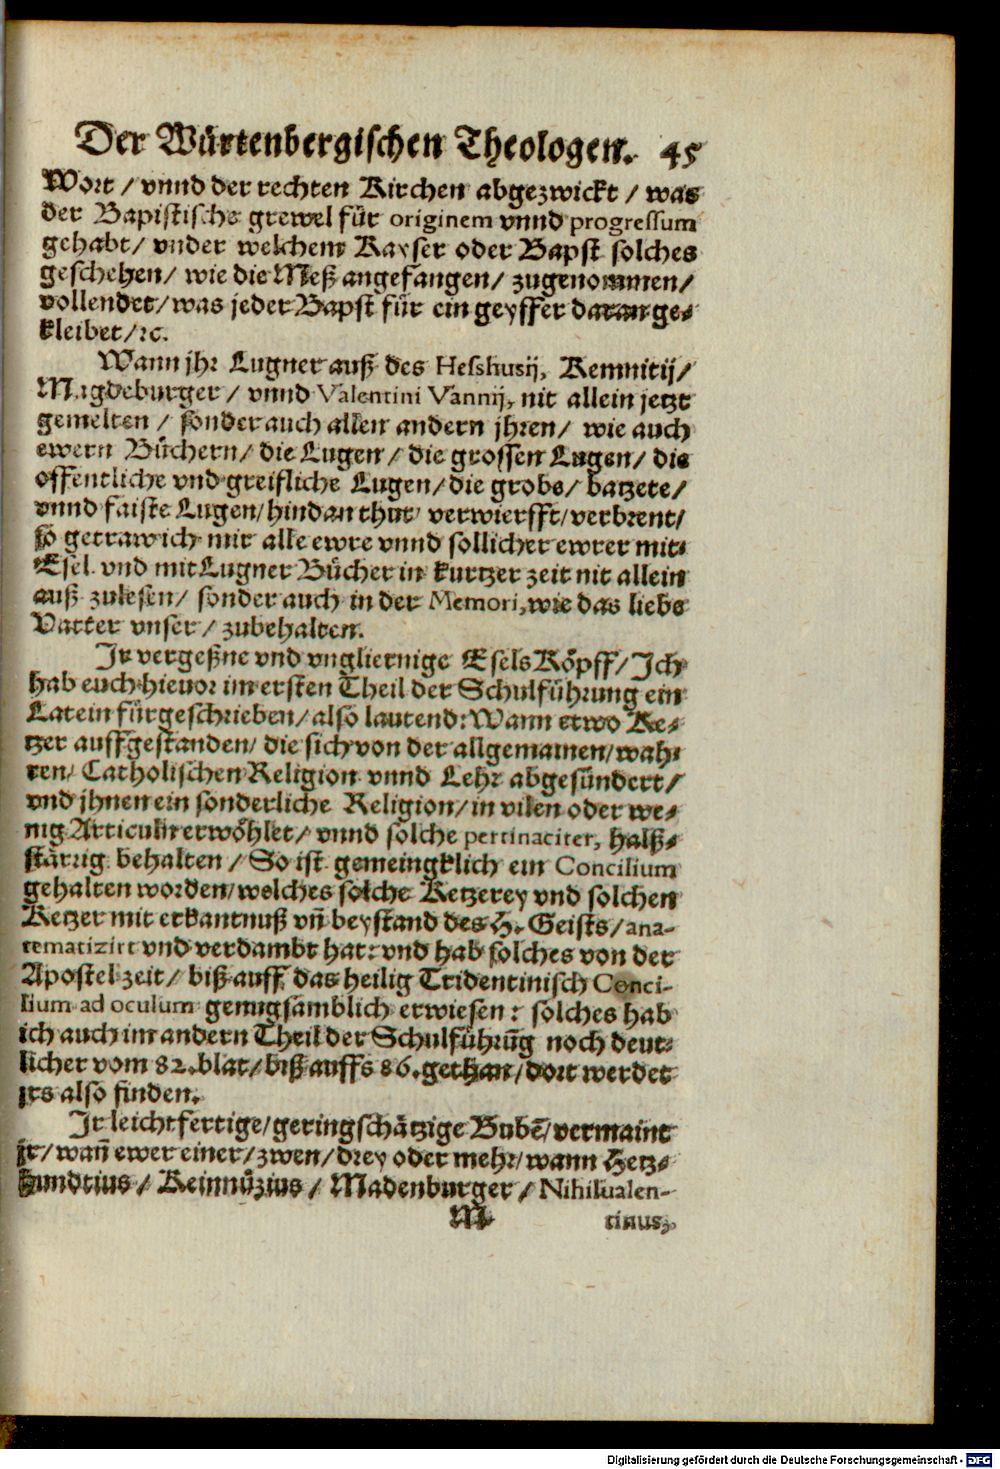 Der Würtenbergischen Theologen. 45
Wort / vnnd der rechten Kirchen abgezwickt / was
der Bapistische grewel für originem vnnd progressum
gehabt / vnder welchem Kayser oder Bapst solches
geschehen / wie die Meß angefangen / zugenommen /
vollendet / was jeder Bapst für ein geyffer daran ge-
kleibet / ꝛc.
Wann jhr Lugner auß des Hesshusij, Kemnitij /
Magdeburger / vnnd Valentini Vannij, nit allein jetzt
gemelten / sonder auch allen andern jhren / wie auch
ewern Büchern / die Lugen / die grossen Lugen / die
offentliche vnd greifliche Lugen / die grobe / batzete /
vnnd faiste Lugen / hindan thut / verwierfft / verbrent /
so getraw ich mir alle ewre vnnd sollicher ewrer mit-
Esel vnd mit Lugner Bücher in kurtzer zeit nit allein
auß zulesen / sonder auch in der Memori, wie das liebe
Vatter vnser / zubehalten.
Ir vergeßne vnd vngliernige Esels Köpff / Ich
hab euch hieuor im ersten Theil der Schulführung ein
Latein fürgeschrieben / also lautend: Wann etwo Ke-
tzer auffgestanden / die sich von der allgemainen / wah-
ren / Catholischen Religion vnnd Lehr abgesündert /
vnd jhnen ein sonderliche Religion / in vilen oder we-
nig Articuln erwöhlet / vnnd solche pertinaciter, halß-
stärrig behalten / So ist gemeingklich ein Concilium
gehalten worden / welches solche Ketzerey vnd solchen
Ketzer mit erkantnuß vn̄ beystand des H. Geists / ana-
tematizirt vnd verdambt hat: vnd hab solches von der
Apostel zeit / biß auff das heilig Tridentinisch Conci-
lium ad oculum genugsamblich erwiesen: solches hab
ich auch im andern Theil der Schulführūg noch deut-
licher vom 82. blat / biß auffs 86. gethan / dort werdet
jrs also finden.
Ir leichtfertige / geringschätzige Bubē / vermaint
jr / wan̄ ewer einer / zwen / drey oder mehr / wann Hetz-
hundtius / Keinnützius / Madenburger / Nihilualen-
M tinus,
Digitalisierung gefördert durch die Deutsche Forschungsgemeinschaft - DFG